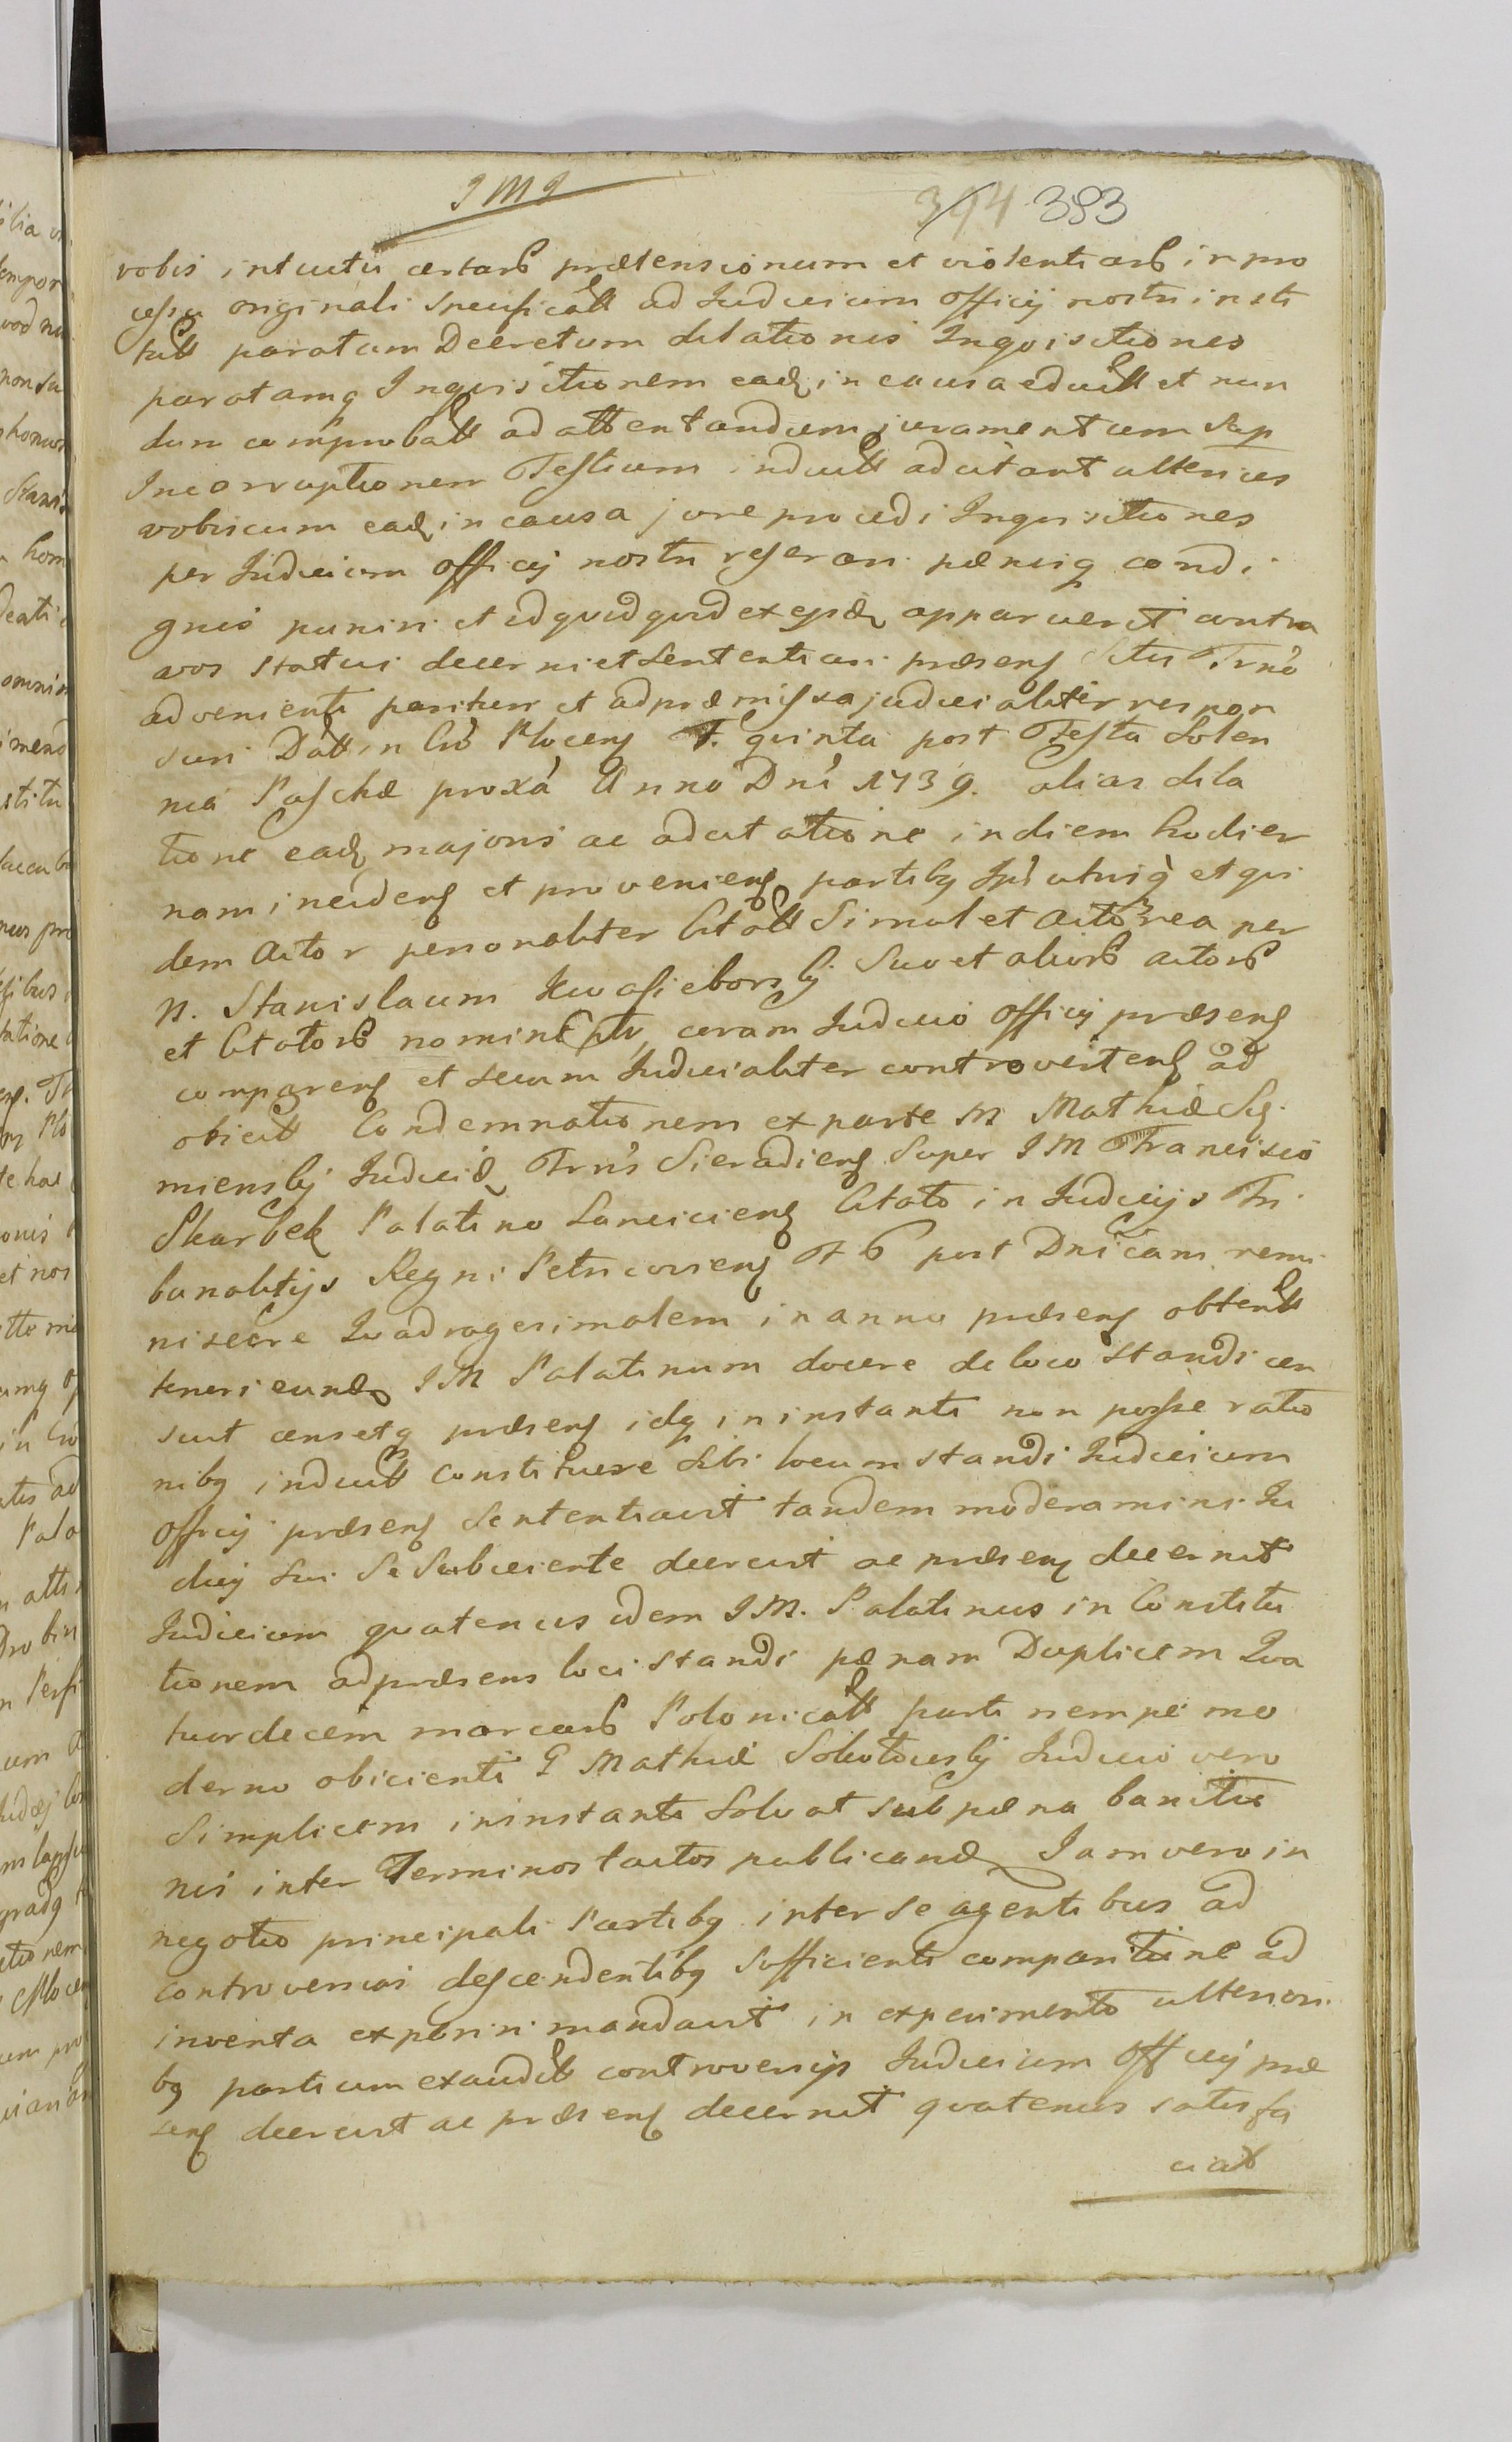 JMJ
394 383
vobis intuitu certarū prætensionum et violentiarū in pro
cessu originali specificatt ad Judicium officij nostri insti
tutt paratum Decretum dilationis Inquisitiones
paratamq Inquisitionem eadē in causa eductt et nun
dum comprobatt ad attentandum juramentum sup
Incorruptionem Testium inductt adcitant ulterius
vobiscum eadē in causa jure procedi Inquisitiones
per Judicium officij nostri reserari pænisq condi
gnis puniri et id quidquid ex ijsdē apparuerit contra
vos statui decerni et sententiari præsens Sitis Trno
advenienti parituri et ad præmissa judicialiter respon
suri Datt in Crō Plocens F. quinta post Festa Solen
nia Paschæ proxa Anno Dni 1739. alias dila
tione eadē majori ac adcitatione in diem hodier
nam incidens et proveniens partibq Ipi utrisq et qui
dem Actor personaliter Citatt Simul et Actorea per
N. Stanislaum Kwasieborski Suo et aliorū actorū
et Citatorū nomine ptr coram Judicio Officij præsens
comparens et secum Judicialiter controvertens ad
objectt Condemnationem ex parte M Mathiæ Sie
mienski Judicis Trris Sieradiens Super JM Francisco
Skarbek Palatino Lanciciens Citato in Judicijs Tri
bunalitijs Regni Petricoviens F 6 post Dnicam remi
niscere Quadragesimalem in anno præsens obtentt
teneri eundē JM Palatinum docere de loco standi cen
suit censetq præsens idq in instanti non posse ratio
nibq inductt constituere Sibi locum standi Judicium
Officij præsens Sententiavit tandem moderamini Ju
dicij Sui Se Subjiciente decrevit ac præsens decernit
Judicium quatenus idem JM. Palatinus in Constitu
tionem ad præsens loci standi pænam Duplicem Qua
tuordecim marcarū Polonicatt parti nempe mo
derno obicienti G Mathiæ Sokołowski Judicio vero
Simplicem in instanti Solvat sub pæna banitio
nis inter Terminos tactos publicandē Jam vero in
negotio principali Partibq inter se agentibus ad
controversias descendentibq Sufficienti comparitione ad
inventa experiri mandavit in experimento ulteriori
bq partium exauditt controversijs Judicium Officij præ
sens decrevit ac præsens decernit quatenus satisfa
ciat